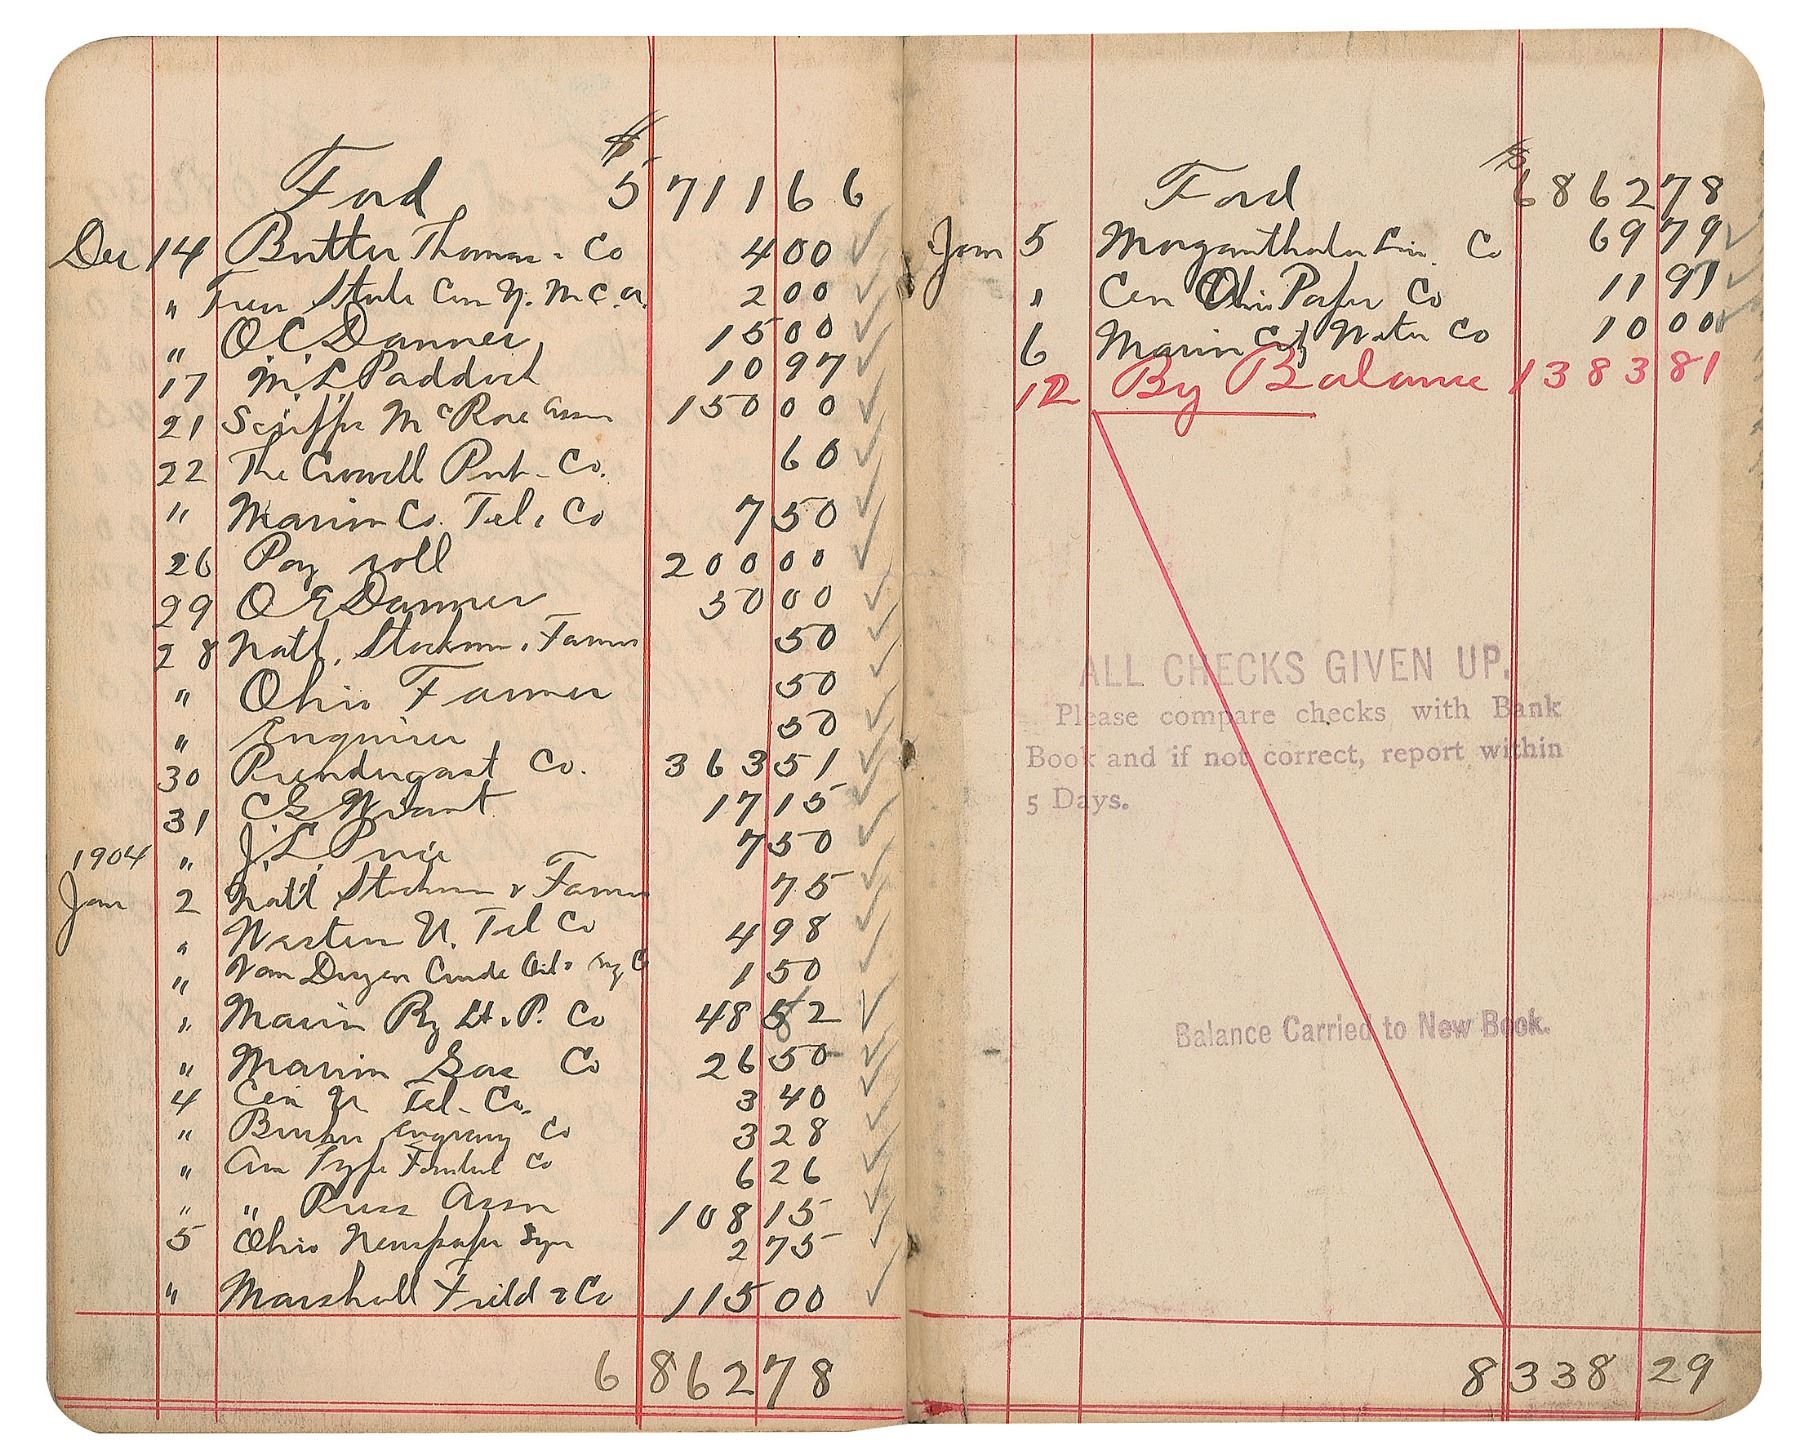 Ford $5711 66
Dec 14 Butter Thomas Co 4 00
" Treas State Com Y. M. C. A. 2 00
" O C Danner 15 00
17 M. L. Paddock 10 97
21 Scripps McRae Assn 150 00
22 The Crowell Pub. Co. 60
" Marion Co. Tel. Co 7 50
26 Pay roll 200 00
29 O E Danner 50 00
28 Natl. Stockman & Farmer 50
" Ohio Farmer 50
" Enquirer 50
30 Prendergast Co. 363 51
31 C G Wiant 17 15
1904 " J. L. Price 7 50
Jan 2 Natl Stockman & Farmer 75
" Western U. Tel Co 4 98
" Van Duzen Crude Oil Co 1 50
" Marion Ry Lt. & P. Co 48 52
" Marion Gas Co 26 50
4 Cen Un Tel. Co. 3 40
" Engraving Co 3 28
" Am Type Co 6 26
" " Press Assn 108 15
5 Ohio Newspaper Syn 2 75
" Marshall Field & Co 115 00
6862 78
Ford $6862 78
Jan 5 Morganthaler Lin. Co 69 79
" Cen Ohio Paper Co 11 91
6 Marion City Water Co 10 00
12 By Balance 1383 81
ALL CHECKS GIVEN UP.
Please compare checks with Bank
Book and if not correct, report within
5 Days.
Balance Carried to New Book.
8338 29